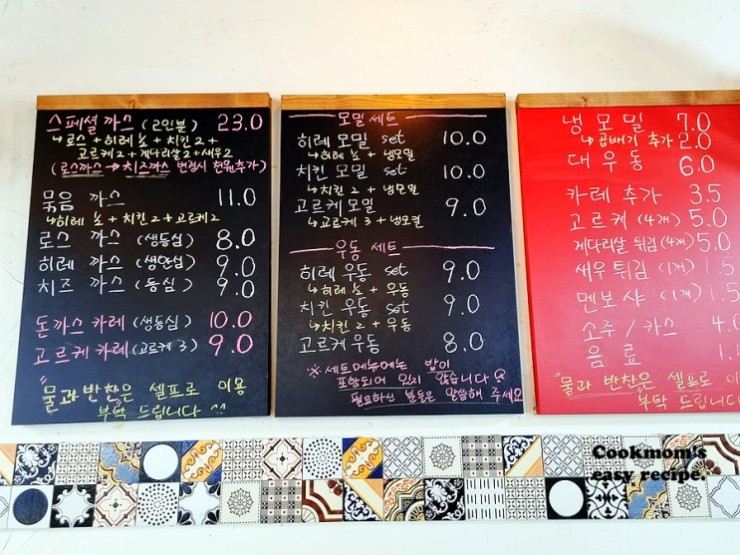 스페셜 까스 (2인분) 23.0
↳로스 + 히레 + 치킨 2 +
고르케 2 + 게다리살 2 + 새우 2
(로스까스 → 치즈까스 변경시 천원추가)
묶음 까스 11.0
↳히레 + 치킨 2 + 고르케 2
로스 까스 (생등심) 8.0
히레 까스 (생안심) 9.0
치즈 까스 (등심) 9.0
돈까스 카레 (생등심) 10.0
고르케 카레 (고르케 3) 9.0
"물과 반찬은 셀프로 이용
부탁 드립니다 ^^
모밀 세트
히레 모밀 set 10.0
↳히레 + 냉모밀
치킨 모밀 set 10.0
↳치킨 2 + 냉모밀
고르케 모밀 9.0
↳고르케 3 + 냉모밀
우동 세트
히레 우동 set 9.0
↳히레 + 우동
치킨 우동 set 9.0
↳치킨 2 + 우동
고르케 우동 8.0
※ 세트메뉴에는 밥이
포함되어 있지 않습니다
필요하신 분들은 말씀해 주세요
냉모밀 7.0
↳곱배기 추가 2.0
대우동 6.0
카레 추가 3.5
고르케 (4개) 5.0
게다리살 튀김 (4개) 5.0
새우 튀김 (1개) 1.5
멘보샤 (1개) 1.5
소주 / 카스 4.
음료 1.
"물과 반찬은 셀프로 이
부탁 드립니다
Cookmom's
easy recipe.